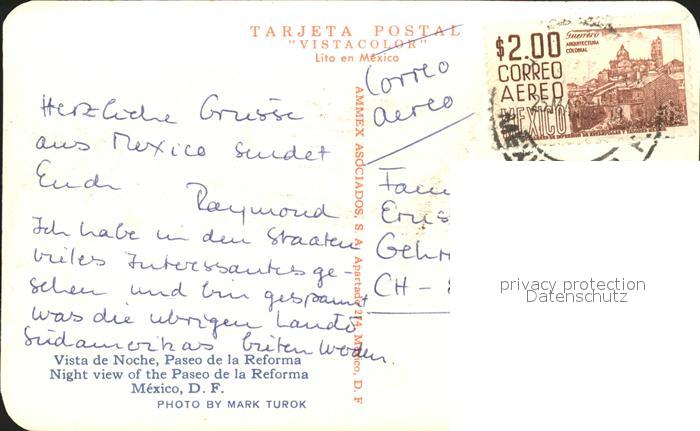 TARJETA POSTAL
"VISTACOLOR"
Lito en México
Correo
aereo
$2.00
CORREO
AEREO
MEXICO
Guerrero
ARQUITECTURA
COLONIAL
Herzliche Grüsse
aus Mexico sendet
Euch
Raymond
Ich habe in den Staaten
vieles Interessantes ge-
sehen und bin gespannt
was die übrigen Lande
Südamerikas bieten werden.
AMMEX ASOCIADOS, S. A. Apartado 274, México, D. F
Fam
Erns
Gehr
CH -
privacy protection
Datenschutz
Vista de Noche, Paseo de la Reforma
Night view of the Paseo de la Reforma
México, D. F.
PHOTO BY MARK TUROK